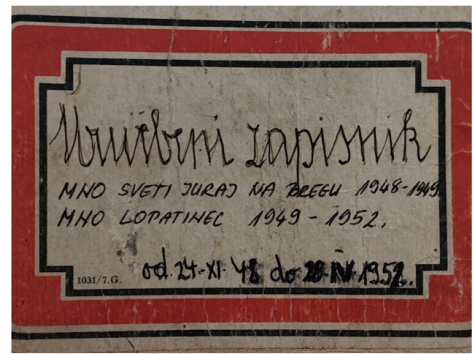 Urudbeni zapisnik
MNO SVETI JURAJ NA BREGU 1948-1949.
MNO LOPATINEC 1949 - 1952.
1031/7.G. od 24-XI-48 do 28 IV. 1952.